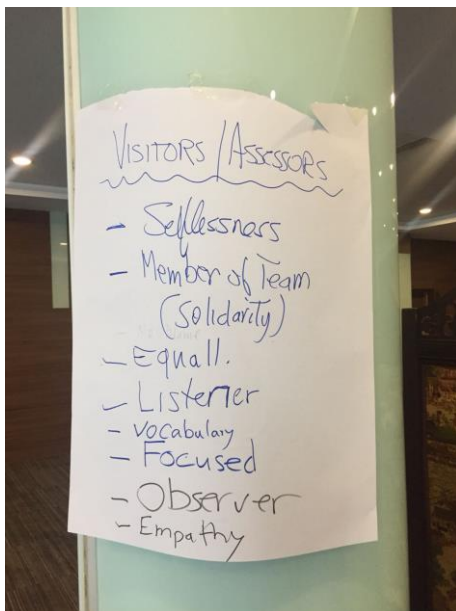 VISITORS / ASSESSORS
- Selflessness
- Member of Team
(Solidarity)
- Equall.
- Listener
- Vocabulary
- Focused
- Observer
- Empathy